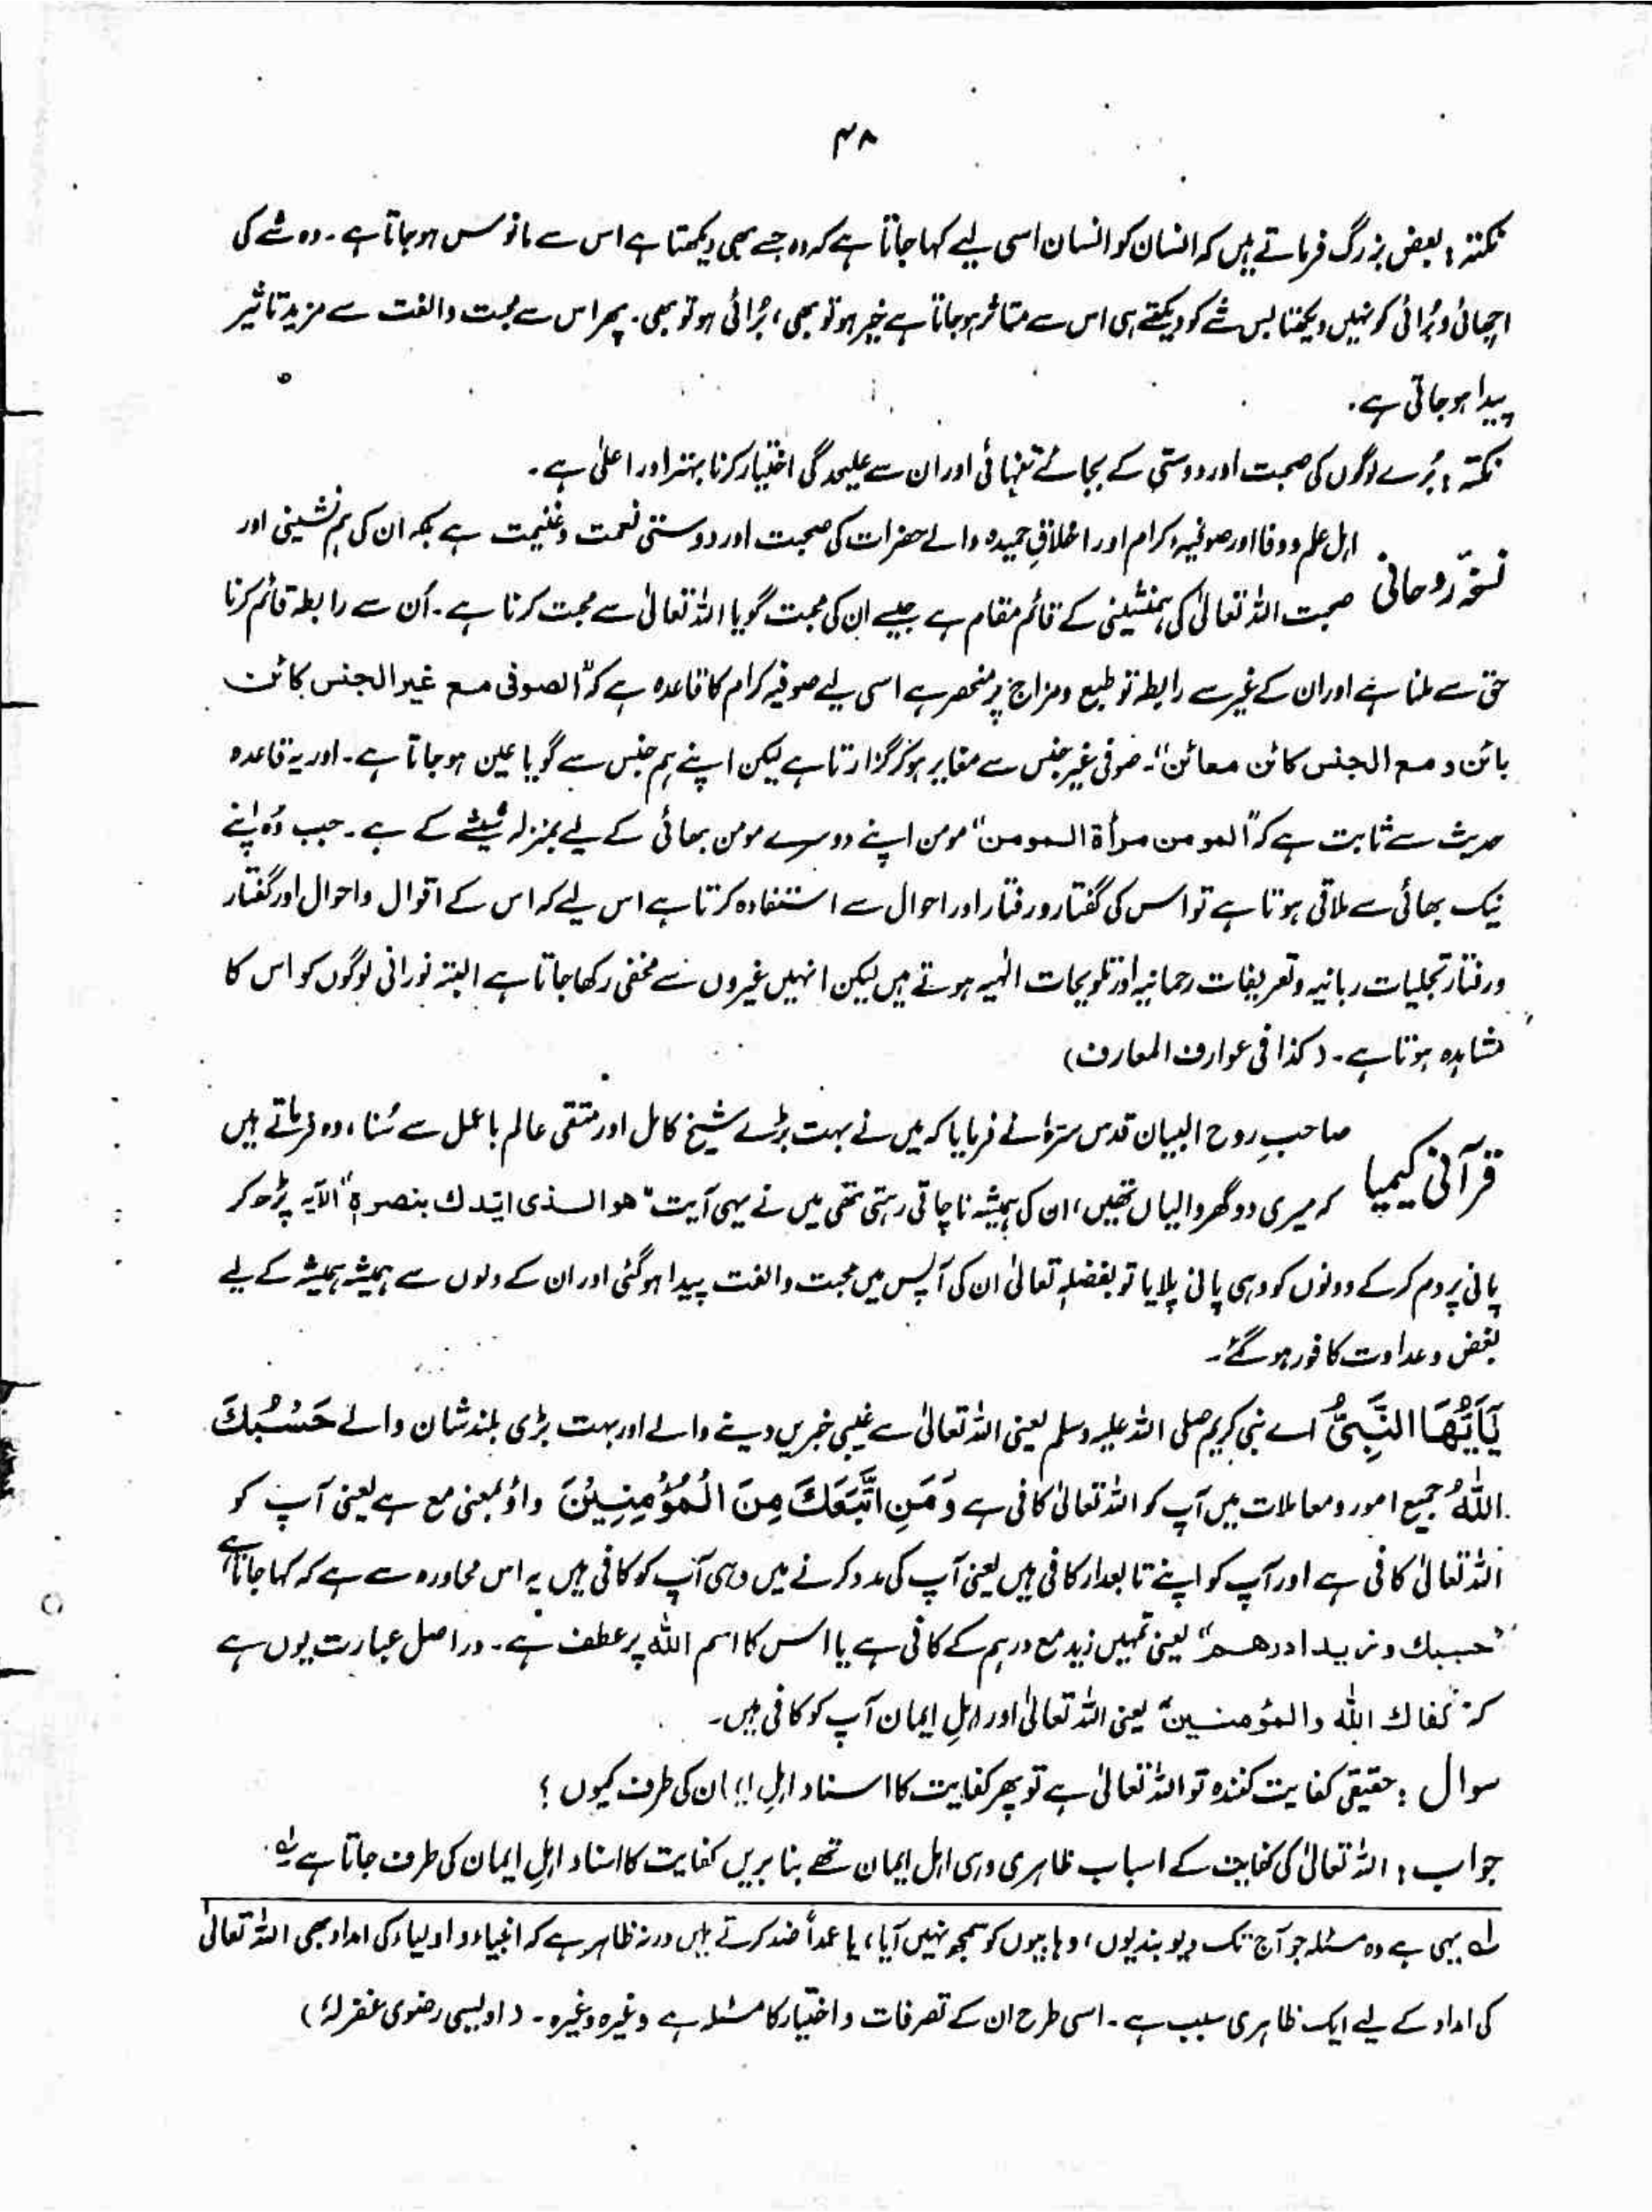 ۴۸
نکتہ : بعض بزرگ فرماتے ہیں کہ انسان کو انسان اسی لیے کہا جاتا ہے کہ وہ جسے بھی دیکھتا ہے اس سے مانوس ہو جاتا ہے ۔ وہ شے کی
اچھائی و بُرائی کو نہیں دیکھتا بس شے کو دیکھتے ہی اس سے متاثر ہو جاتا ہے خیر ہو تو بھی ، بُرائی ہو تو بھی ۔ پھر اس سے محبت و الفت سے مزید تاثیر
پیدا ہو جاتی ہے ۔
نکتہ : بُرے لوگوں کی صحبت اور دوستی کے بجائے تنہائی اور ان سے علیحدگی اختیار کرنا بہتر اور اعلیٰ ہے ۔
نسخۂ روحانی اہل علم و وفا اور صوفیہ کرام اور اخلاقِ حمیدہ والے حضرات کی صحبت اور دوستی نعمت و غنیمت ہے بلکہ ان کی ہم نشینی اور
صحبت اللہ تعالیٰ کی ہمنشینی کے قائم مقام ہے جیسے ان کی محبت گویا اللہ تعالیٰ سے محبت کرنا ہے ۔ اُن سے رابطہ قائم کرنا
حق سے ملنا ہے اور ان کے غیر سے رابطہ تو طبع و مزاج پر منحصر ہے اسی لیے صوفیہ کرام کا قاعدہ ہے کہ ”الصوفی مع غیر الجنس کائن
بائن و مع الجنس کائن معائن“۔ صوفی غیر جنس سے مغایر ہو کر گزارتا ہے لیکن اپنے ہم جنس سے گویا عین ہو جاتا ہے ۔ اور یہ قاعدہ
حدیث سے ثابت ہے کہ ”المومن مرأة المومن“ مومن اپنے دوسرے مومن بھائی کے لیے بمنزلہ شیشے کے ہے ۔ جب وُہ اپنے
نیک بھائی سے ملاقی ہوتا ہے تو اس کی گفتار و رفتار اور احوال سے استفادہ کرتا ہے اس لیے کہ اس کے اقوال و احوال اور گفتار
و رفتار تجلیات ربانیہ و تعریفات رحمانیہ اور تلویحات الٰہیہ ہوتے ہیں لیکن انہیں غیروں سے مخفی رکھا جاتا ہے البتہ نورانی لوگوں کو اس کا
مشاہدہ ہوتا ہے ۔ (کذا فی عوارف المعارف)
قرآنی کیمیا صاحبِ روح البیان قدس سرہٗ نے فرمایا کہ میں نے بہت بڑے شیخ کامل اور متقی عالم باعمل سے سُنا ، وہ فرماتے ہیں
کہ میری دو گھر والیاں تھیں ، ان کی ہمیشہ ناچاقی رہتی تھی میں نے یہی آیت ”ھو الذی ایّدك بنصرہ“ الآیہ پڑھ کر
پانی پر دم کر کے دونوں کو وہی پانی پلایا تو بفضلہٖ تعالیٰ ان کی آپس میں محبت و الفت پیدا ہو گئی اور ان کے دلوں سے ہمیشہ ہمیشہ کے لیے
بغض و عداوت کافور ہو گئے ۔
یٰۤاَیُّهَا النَّبِیُّ اے نبی کریم صلی اللہ علیہ وسلم یعنی اللہ تعالیٰ سے غیبی خبریں دینے والے اور بہت بڑی بلند شان والے حَسْبُكَ
اللّٰهُ جمیع امور و معاملات میں آپ کو اللہ تعالیٰ کافی ہے وَ مَنِ اتَّبَعَكَ مِنَ الْمُؤْمِنِیْنَ واؤ بمعنی مع ہے یعنی آپ کو
اللہ تعالیٰ کافی ہے اور آپ کو اپنے تابعدار کافی ہیں یعنی آپ کی مدد کرنے میں وہی آپ کو کافی ہیں یہ اس محاورہ سے ہے کہ کہا جاتا ہے
”حسبك و زیدا درھم“ یعنی تمہیں زید مع درہم کے کافی ہے یا اس کا اسم اللہ پر عطف ہے ۔ دراصل عبارت یوں ہے
کہ ”کفاك اللّٰه والمؤمنین“ یعنی اللہ تعالیٰ اور اہلِ ایمان آپ کو کافی ہیں ۔
سوال : حقیقی کفایت کنندہ تو اللہ تعالیٰ ہے تو پھر کفایت کا اسناد اہلِ ایمان کی طرف کیوں ؟
جواب : اللہ تعالیٰ کی کفایت کے اسباب ظاہری وہی اہل ایمان تھے بنا بریں کفایت کا اسناد اہلِ ایمان کی طرف جاتا ہے لہ
لہ یہی ہے وہ مسئلہ جو آج تک دیوبندیوں ، وہابیوں کو سمجھ نہیں آیا ، یا عمداً ضد کرتے ہیں ورنہ ظاہر ہے کہ انبیاء و اولیاء کی امداد بھی اللہ تعالیٰ
کی امداد کے لیے ایک ظاہری سبب ہے ۔ اسی طرح ان کے تصرفات و اختیار کا مسئلہ ہے وغیرہ وغیرہ ۔ (اویسی رضوی غفر لہٗ)